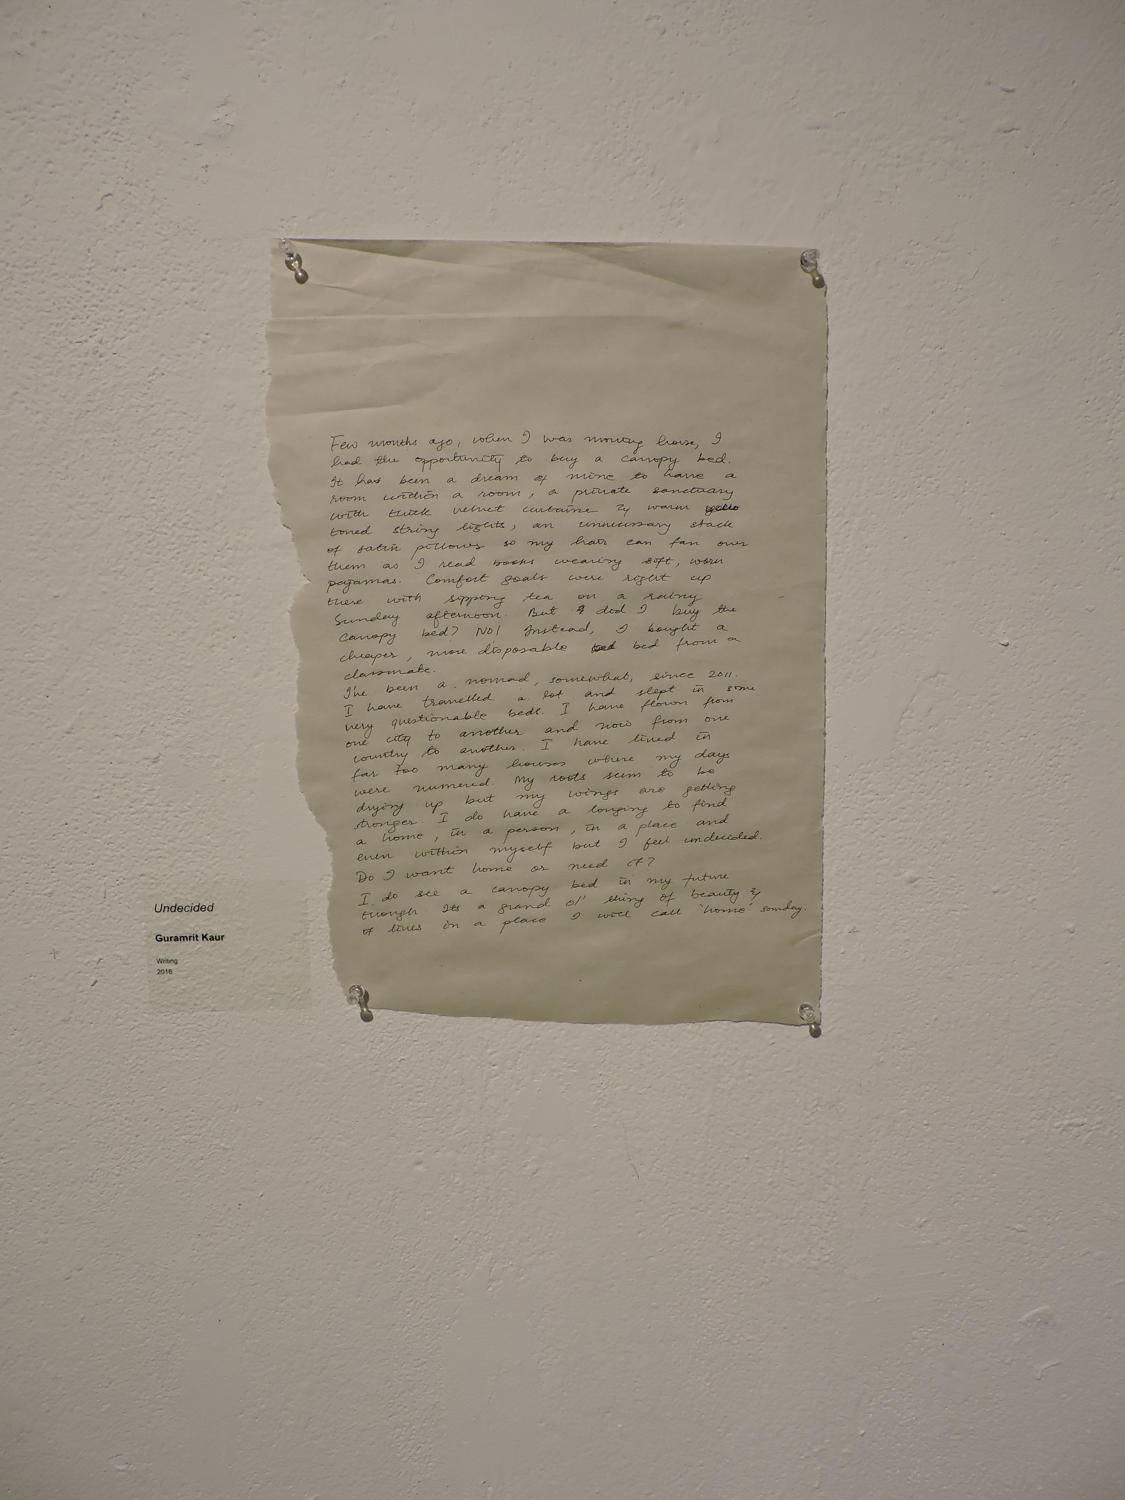 Few months ago, when I was moving house, I
had the opportunity to buy a canopy bed.
It has been a dream of mine to have a
room within a room, a private sanctuary
with thick velvet curtains & warm
toned string lights, an unnecessary stack
of satin pillows so my hair can fan over
them as I read books wearing soft, worn
pajamas. Comfort goals were right up
there with sipping tea on a rainy
Sunday afternoon. But did I buy the
canopy bed? NO! Instead, I bought a
cheaper, more disposable bed from a
classmate.
I've been a nomad, somewhat, since 2011.
I have travelled a lot and slept in some
very questionable beds. I have flown from
one city to another and now from one
country to another. I have lived in
far too many houses where my days
were numered. My roots seem to be
drying up but my wings are getting
stronger. I do have a longing to find
a home, in a person, in a place and
even within myself but I feel undecided.
Do I want home or need it?
I do see a canopy bed in my future
though. Its a grand ol' thing of beauty &
it lives in a place I will call 'home' someday.
Undecided
Guramrit Kaur
Writing
2016